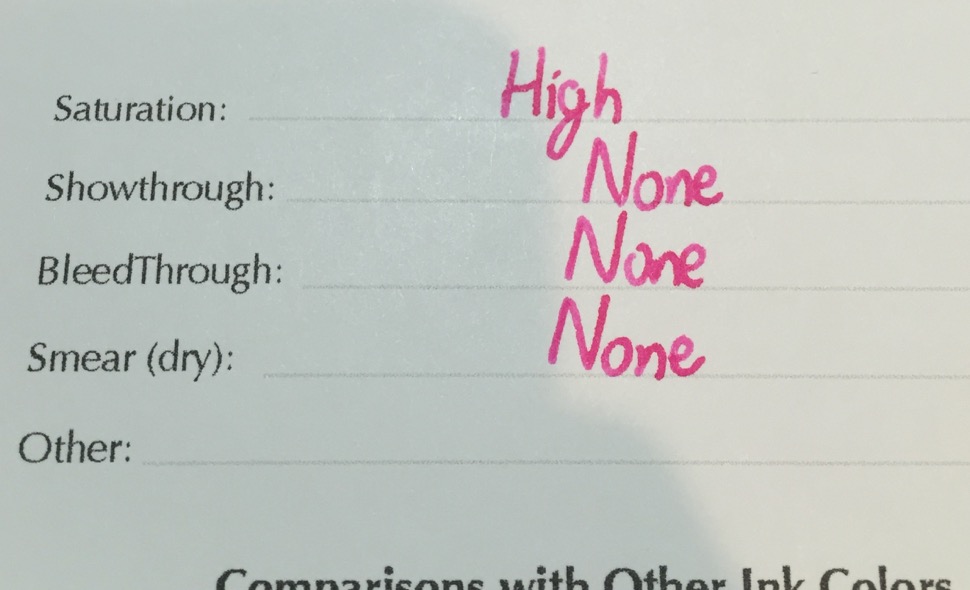 Saturation: High
Showthrough: None
BleedThrough: None
Smear (dry): None
Other:
Comparisons with Other Ink Colors